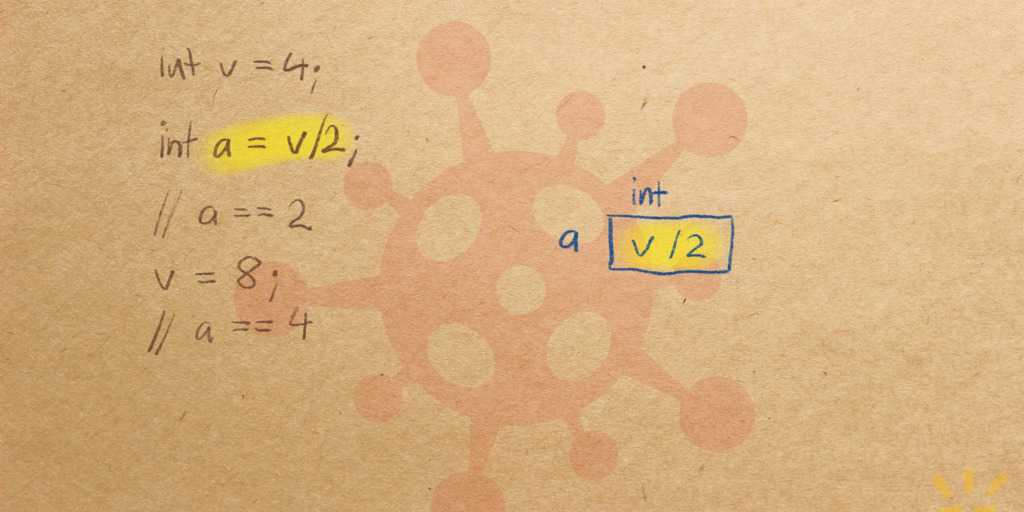 int v = 4;
int a = v/2;
// a == 2
v = 8;
// a == 4
int
a v/2